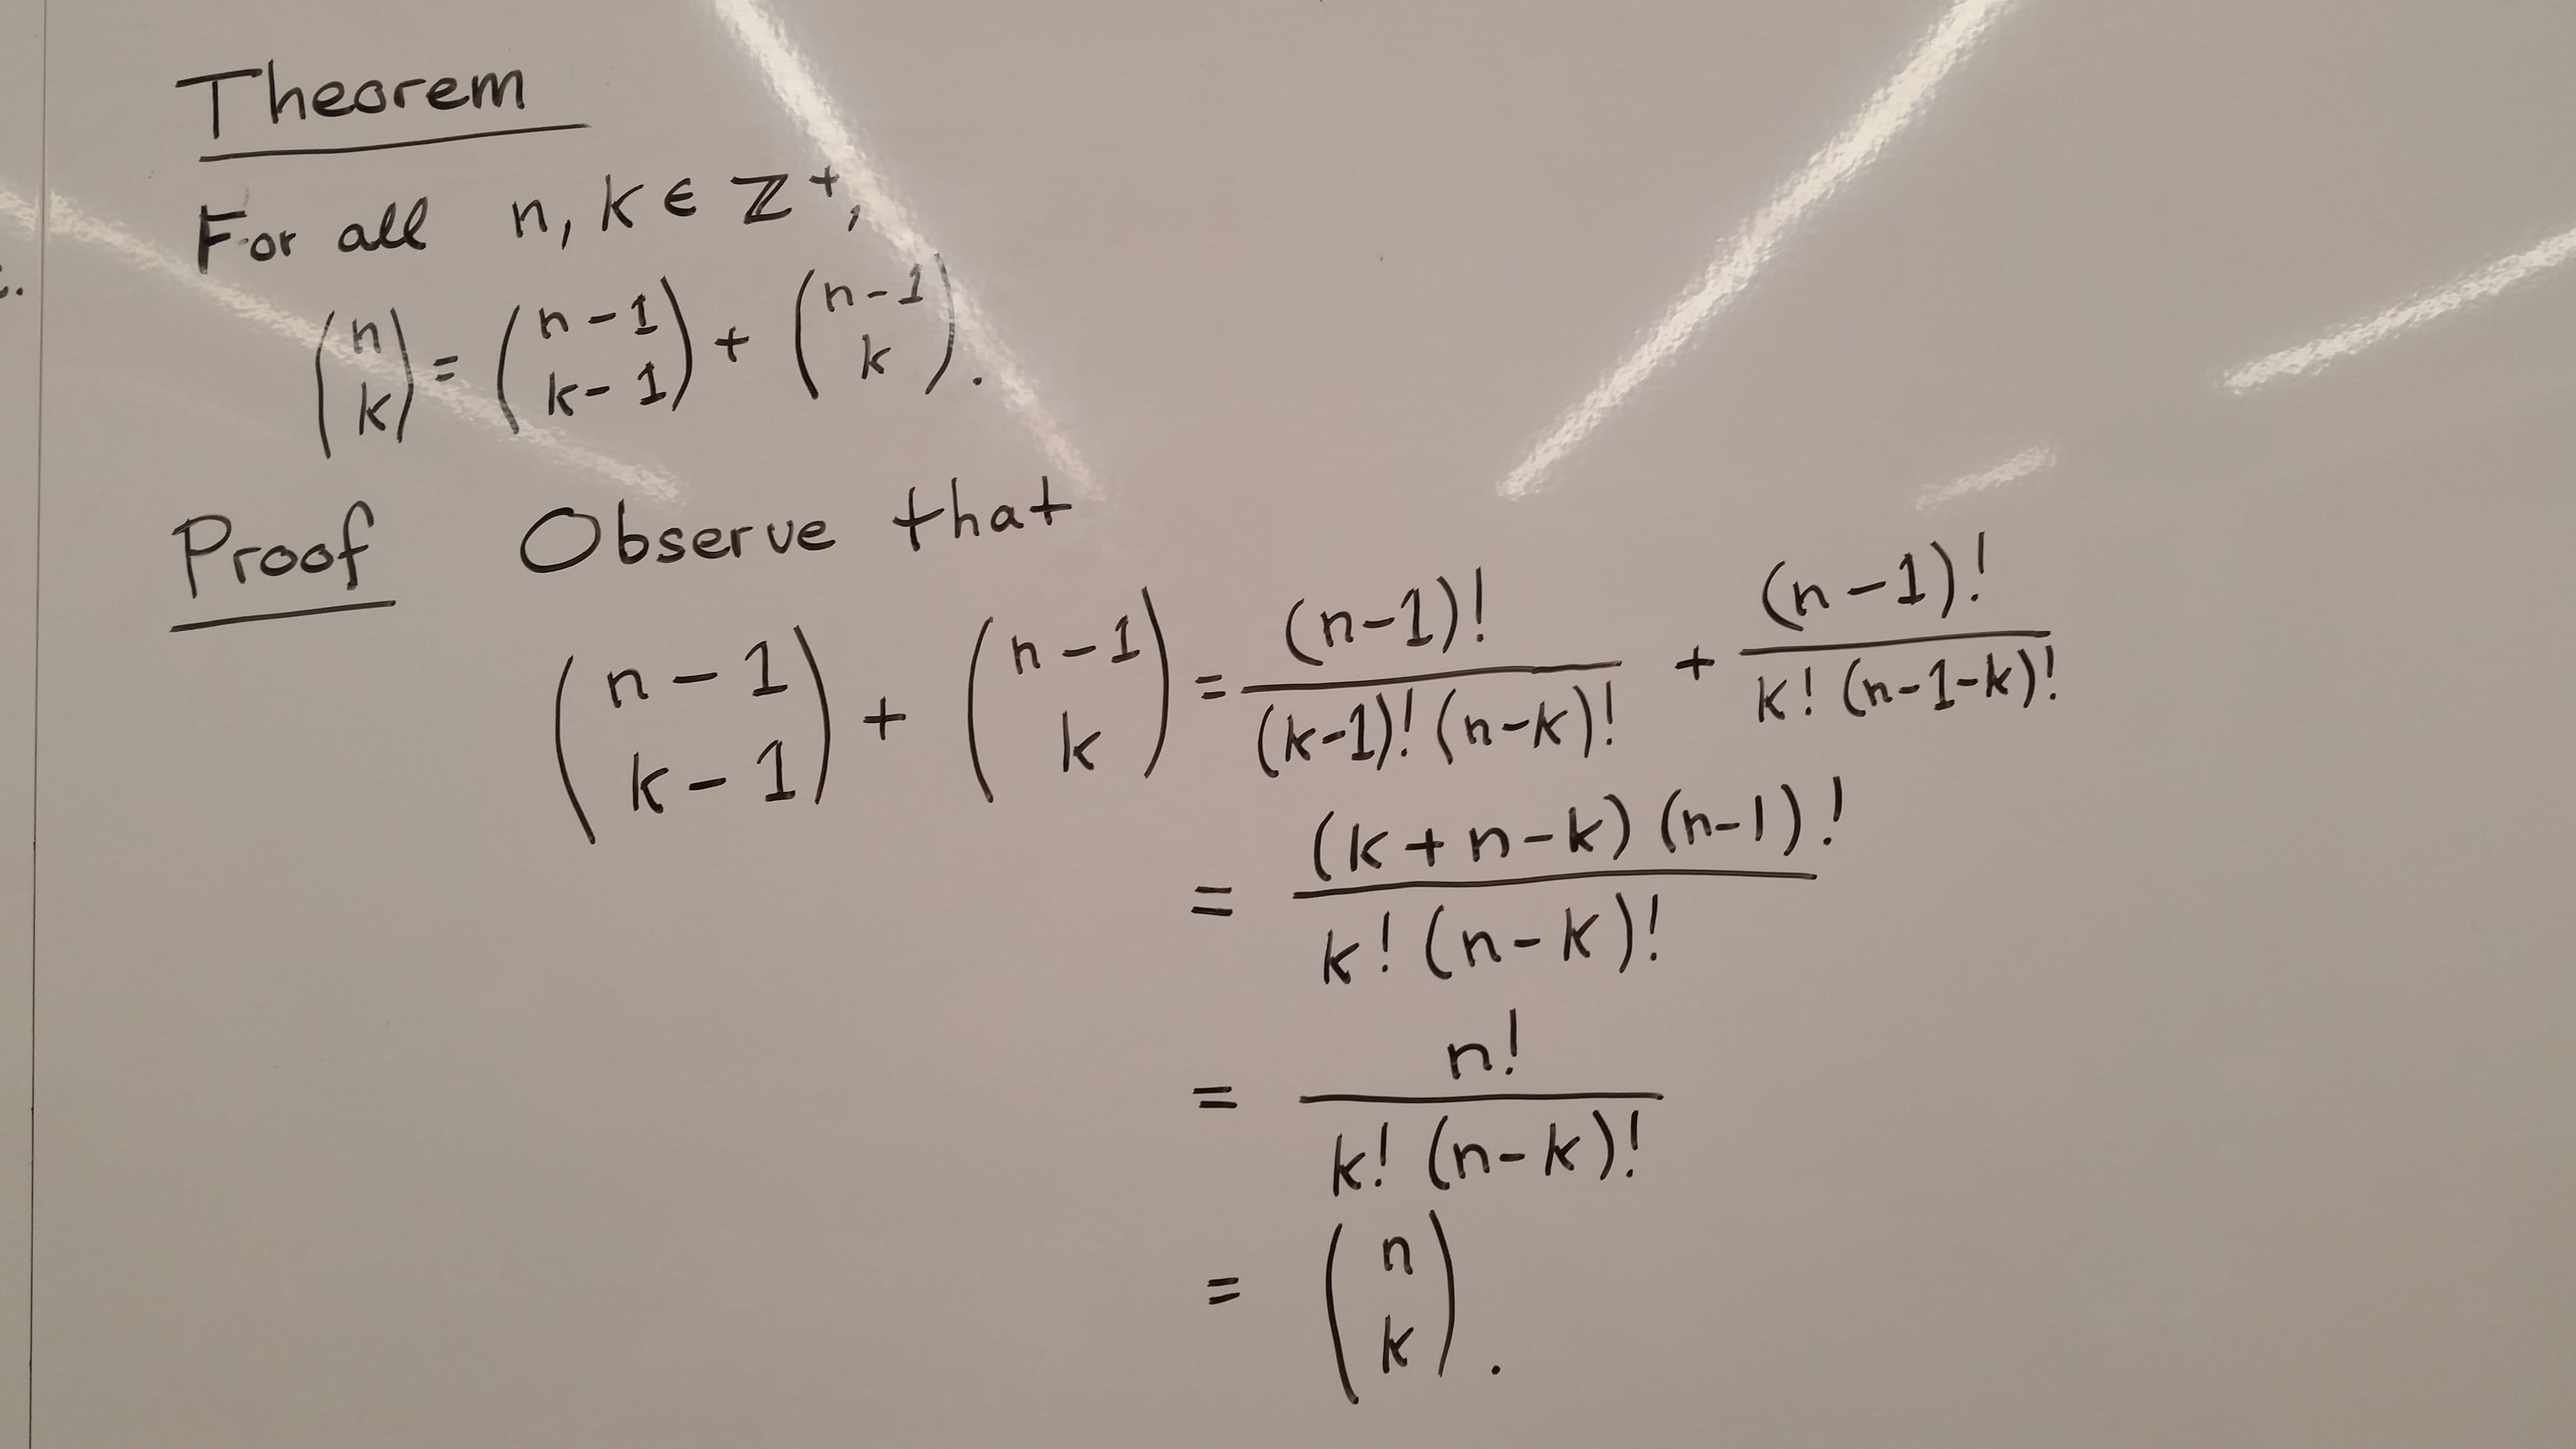 Theorem
For all n, k ∈ ℤ⁺,
\binom{n}{k} = \binom{n-1}{k-1} + \binom{n-1}{k}.
Proof Observe that
\binom{n-1}{k-1} + \binom{n-1}{k} = \frac{(n-1)!}{(k-1)!(n-k)!} + \frac{(n-1)!}{k!(n-1-k)!}
= \frac{(k+n-k)(n-1)!}{k!(n-k)!}
= \frac{n!}{k!(n-k)!}
= \binom{n}{k}.